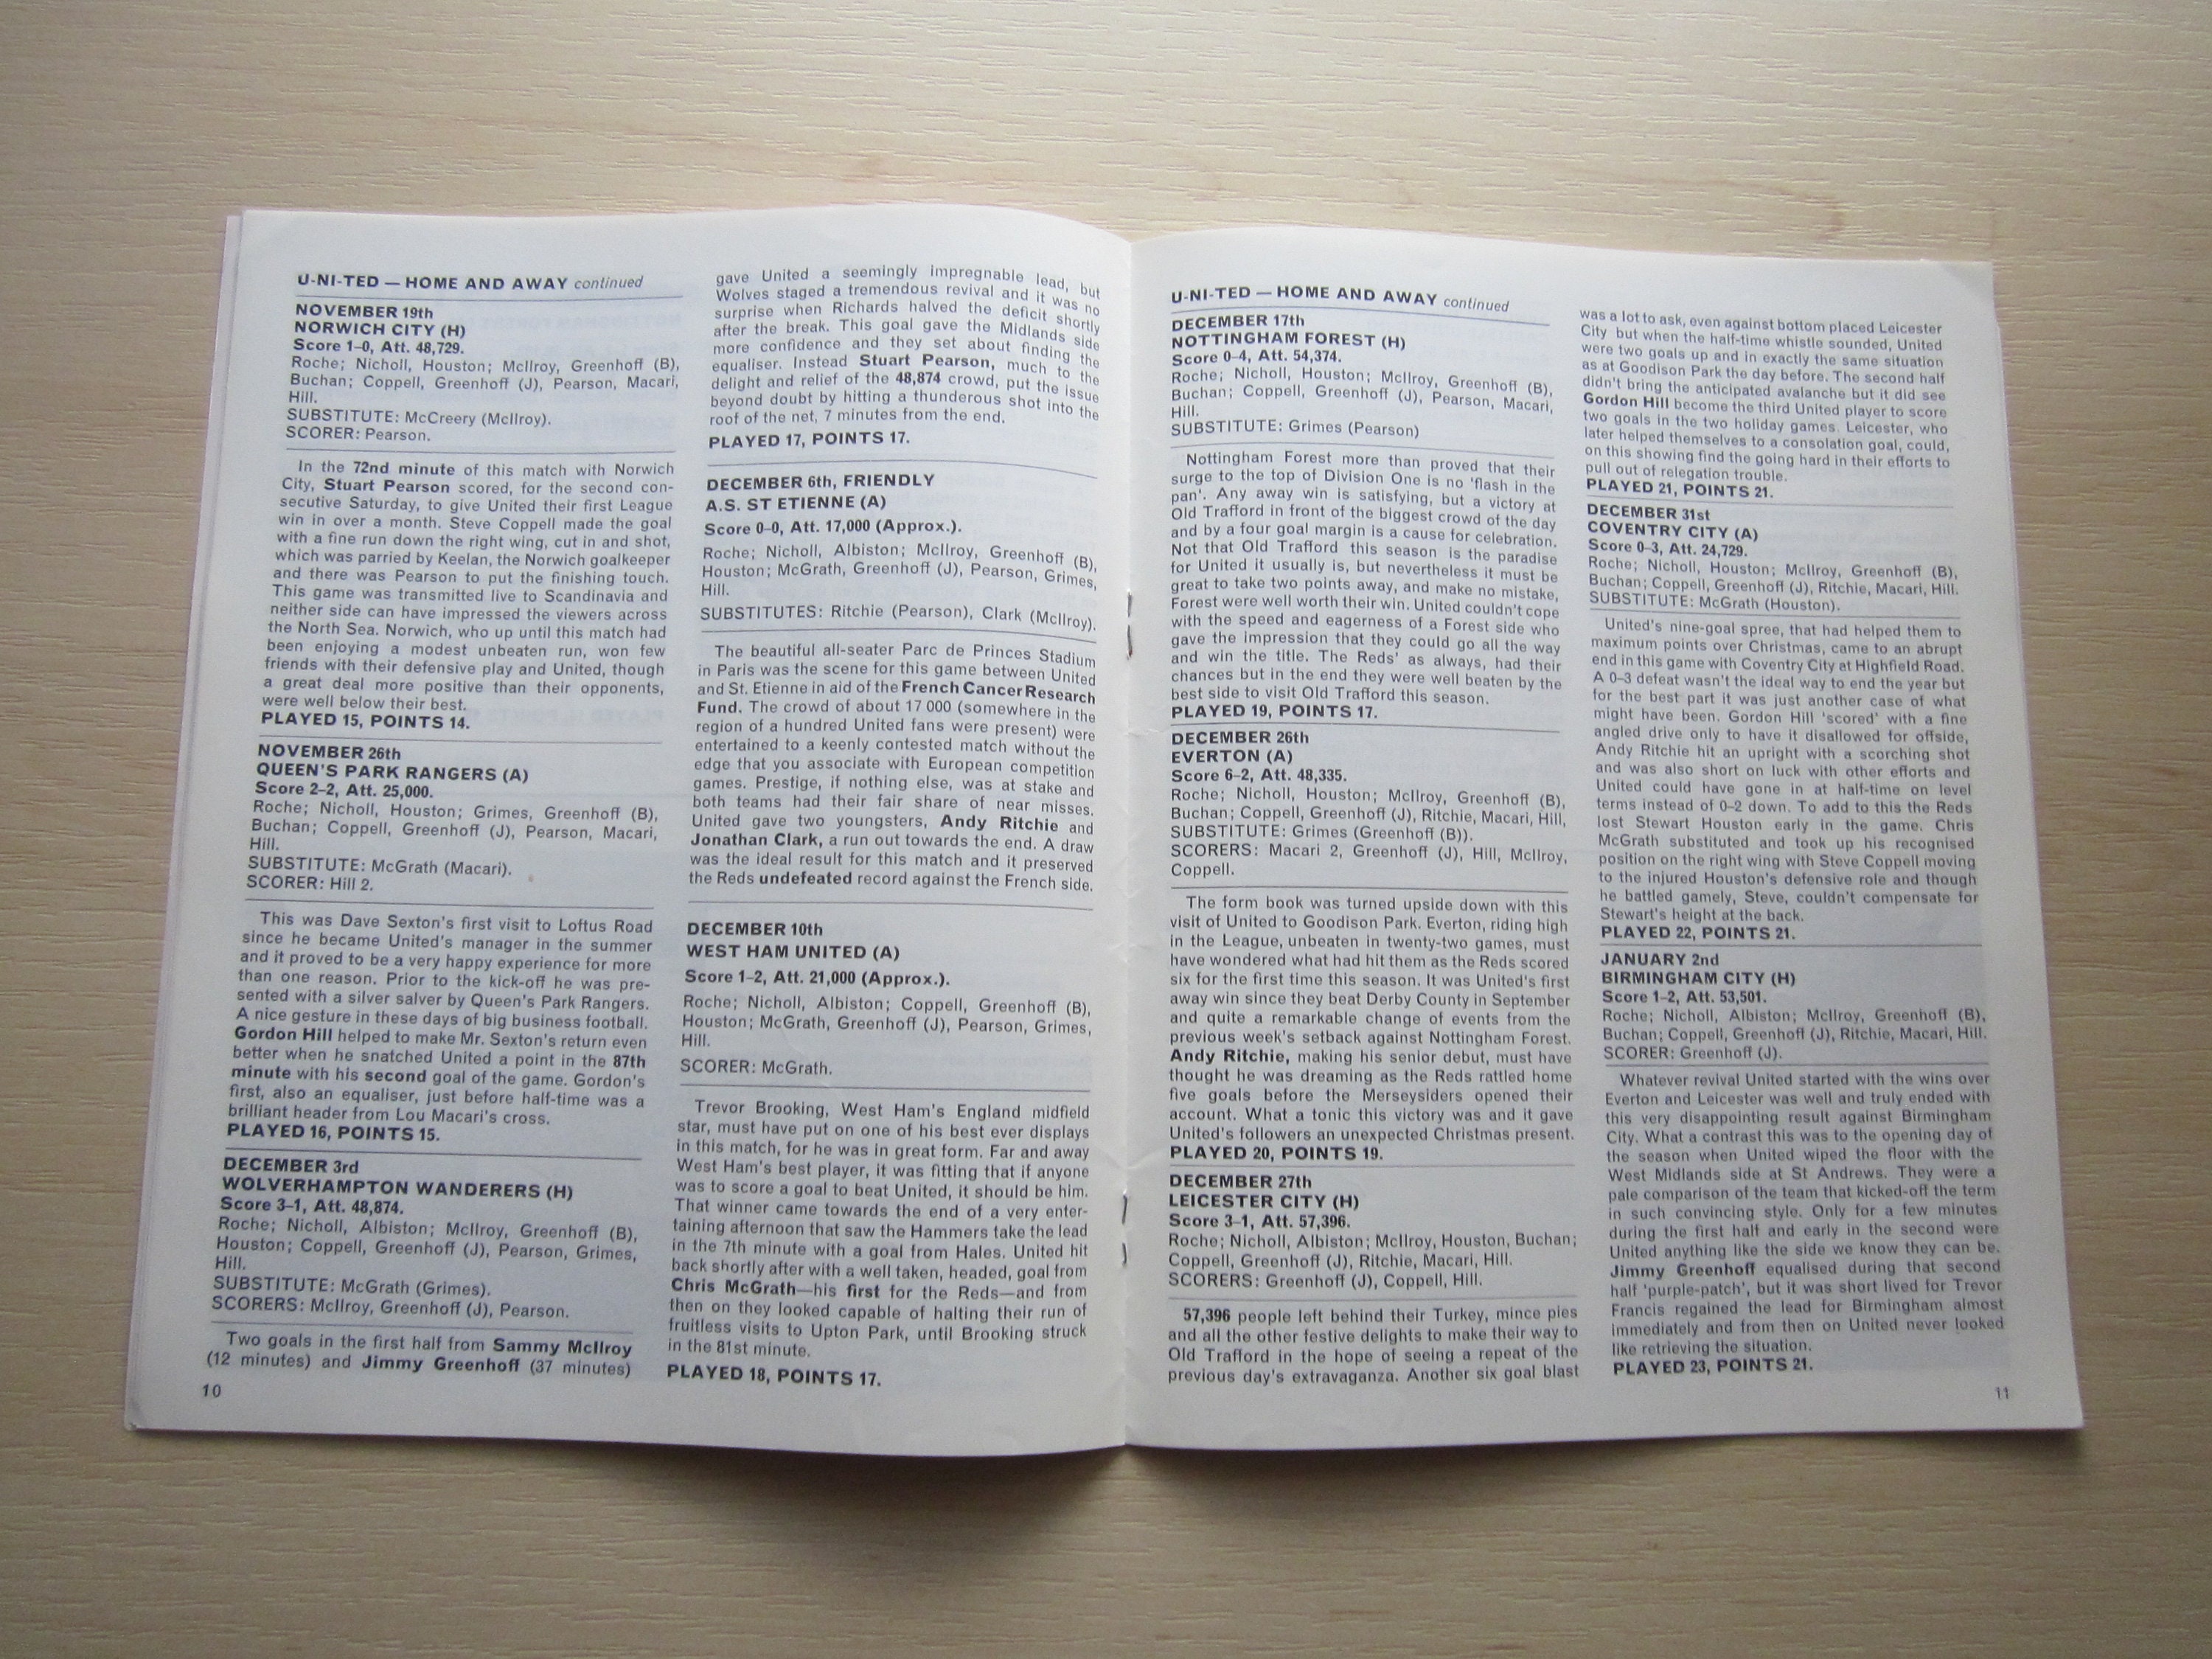 U-NI-TED — HOME AND AWAY continued
NOVEMBER 19th
NORWICH CITY (H)
Score 1–0, Att. 48,729.
Roche; Nicholl, Houston; McIlroy, Greenhoff (B),
Buchan; Coppell, Greenhoff (J), Pearson, Macari,
Hill.
SUBSTITUTE: McCreery (McIlroy).
SCORER: Pearson.
In the 72nd minute of this match with Norwich
City, Stuart Pearson scored, for the second con-
secutive Saturday, to give United their first League
win in over a month. Steve Coppell made the goal
with a fine run down the right wing, cut in and shot,
which was parried by Keelan, the Norwich goalkeeper
and there was Pearson to put the finishing touch.
This game was transmitted live to Scandinavia and
neither side can have impressed the viewers across
the North Sea. Norwich, who up until this match had
been enjoying a modest unbeaten run, won few
friends with their defensive play and United, though
a great deal more positive than their opponents,
were well below their best.
PLAYED 15, POINTS 14.
NOVEMBER 26th
QUEEN'S PARK RANGERS (A)
Score 2–2, Att. 25,000.
Roche; Nicholl, Houston; Grimes, Greenhoff (B),
Buchan; Coppell, Greenhoff (J), Pearson, Macari,
Hill.
SUBSTITUTE: McGrath (Macari).
SCORER: Hill 2.
This was Dave Sexton's first visit to Loftus Road
since he became United's manager in the summer
and it proved to be a very happy experience for more
than one reason. Prior to the kick-off he was pre-
sented with a silver salver by Queen's Park Rangers.
A nice gesture in these days of big business football.
Gordon Hill helped to make Mr. Sexton's return even
better when he snatched United a point in the 87th
minute with his second goal of the game. Gordon's
first, also an equaliser, just before half-time was a
brilliant header from Lou Macari's cross.
PLAYED 16, POINTS 15.
DECEMBER 3rd
WOLVERHAMPTON WANDERERS (H)
Score 3–1, Att. 48,874.
Roche; Nicholl, Albiston; McIlroy, Greenhoff (B),
Houston; Coppell, Greenhoff (J), Pearson, Grimes,
Hill.
SUBSTITUTE: McGrath (Grimes).
SCORERS: McIlroy, Greenhoff (J), Pearson.
Two goals in the first half from Sammy McIlroy
(12 minutes) and Jimmy Greenhoff (37 minutes)
10
gave United a seemingly impregnable lead, but
Wolves staged a tremendous revival and it was no
surprise when Richards halved the deficit shortly
after the break. This goal gave the Midlands side
more confidence and they set about finding the
equaliser. Instead Stuart Pearson, much to the
delight and relief of the 48,874 crowd, put the issue
beyond doubt by hitting a thunderous shot into the
roof of the net, 7 minutes from the end.
PLAYED 17, POINTS 17.
DECEMBER 6th, FRIENDLY
A.S. ST ETIENNE (A)
Score 0–0, Att. 17,000 (Approx.).
Roche; Nicholl, Albiston; McIlroy, Greenhoff (B),
Houston; McGrath, Greenhoff (J), Pearson, Grimes,
Hill.
SUBSTITUTES: Ritchie (Pearson), Clark (McIlroy).
The beautiful all-seater Parc de Princes Stadium
in Paris was the scene for this game between United
and St. Etienne in aid of the French Cancer Research
Fund. The crowd of about 17 000 (somewhere in the
region of a hundred United fans were present) were
entertained to a keenly contested match without the
edge that you associate with European competition
games. Prestige, if nothing else, was at stake and
both teams had their fair share of near misses.
United gave two youngsters, Andy Ritchie and
Jonathan Clark, a run out towards the end. A draw
was the ideal result for this match and it preserved
the Reds undefeated record against the French side.
DECEMBER 10th
WEST HAM UNITED (A)
Score 1–2, Att. 21,000 (Approx.).
Roche; Nicholl, Albiston; Coppell, Greenhoff (B),
Houston; McGrath, Greenhoff (J), Pearson, Grimes,
Hill.
SCORER: McGrath.
Trevor Brooking, West Ham's England midfield
star, must have put on one of his best ever displays
in this match, for he was in great form. Far and away
West Ham's best player, it was fitting that if anyone
was to score a goal to beat United, it should be him.
That winner came towards the end of a very enter-
taining afternoon that saw the Hammers take the lead
in the 7th minute with a goal from Hales. United hit
back shortly after with a well taken, headed, goal from
Chris McGrath—his first for the Reds—and from
then on they looked capable of halting their run of
fruitless visits to Upton Park, until Brooking struck
in the 81st minute.
PLAYED 18, POINTS 17.
U-NI-TED — HOME AND AWAY continued
DECEMBER 17th
NOTTINGHAM FOREST (H)
Score 0–4, Att. 54,374.
Roche; Nicholl, Houston; McIlroy, Greenhoff (B),
Buchan; Coppell, Greenhoff (J), Pearson, Macari,
Hill.
SUBSTITUTE: Grimes (Pearson)
Nottingham Forest more than proved that their
surge to the top of Division One is no 'flash in the
pan'. Any away win is satisfying, but a victory at
Old Trafford in front of the biggest crowd of the day
and by a four goal margin is a cause for celebration.
Not that Old Trafford this season is the paradise
for United it usually is, but nevertheless it must be
great to take two points away, and make no mistake,
Forest were well worth their win. United couldn't cope
with the speed and eagerness of a Forest side who
gave the impression that they could go all the way
and win the title. The Reds' as always, had their
chances but in the end they were well beaten by the
best side to visit Old Trafford this season.
PLAYED 19, POINTS 17.
DECEMBER 26th
EVERTON (A)
Score 6–2, Att. 48,335.
Roche; Nicholl, Houston; McIlroy, Greenhoff (B),
Buchan; Coppell, Greenhoff (J), Ritchie, Macari, Hill,
SUBSTITUTE: Grimes (Greenhoff (B)).
SCORERS: Macari 2, Greenhoff (J), Hill, McIlroy,
Coppell.
The form book was turned upside down with this
visit of United to Goodison Park. Everton, riding high
in the League, unbeaten in twenty-two games, must
have wondered what had hit them as the Reds scored
six for the first time this season. It was United's first
away win since they beat Derby County in September
and quite a remarkable change of events from the
previous week's setback against Nottingham Forest.
Andy Ritchie, making his senior debut, must have
thought he was dreaming as the Reds rattled home
five goals before the Merseysiders opened their
account. What a tonic this victory was and it gave
United's followers an unexpected Christmas present.
PLAYED 20, POINTS 19.
DECEMBER 27th
LEICESTER CITY (H)
Score 3–1, Att. 57,396.
Roche; Nicholl, Albiston; McIlroy, Houston, Buchan;
Coppell, Greenhoff (J), Ritchie, Macari, Hill.
SCORERS: Greenhoff (J), Coppell, Hill.
57,396 people left behind their Turkey, mince pies
and all the other festive delights to make their way to
Old Trafford in the hope of seeing a repeat of the
previous day's extravaganza. Another six goal blast
was a lot to ask, even against bottom placed Leicester
City but when the half-time whistle sounded, United
were two goals up and in exactly the same situation
as at Goodison Park the day before. The second half
didn't bring the anticipated avalanche but it did see
Gordon Hill become the third United player to score
two goals in the two holiday games. Leicester, who
later helped themselves to a consolation goal, could,
on this showing find the going hard in their efforts to
pull out of relegation trouble.
PLAYED 21, POINTS 21.
DECEMBER 31st
COVENTRY CITY (A)
Score 0–3, Att. 24,729.
Roche; Nicholl, Houston; McIlroy, Greenhoff (B),
Buchan; Coppell, Greenhoff (J), Ritchie, Macari, Hill.
SUBSTITUTE: McGrath (Houston).
United's nine-goal spree, that had helped them to
maximum points over Christmas, came to an abrupt
end in this game with Coventry City at Highfield Road.
A 0–3 defeat wasn't the ideal way to end the year but
for the best part it was just another case of what
might have been. Gordon Hill 'scored' with a fine
angled drive only to have it disallowed for offside,
Andy Ritchie hit an upright with a scorching shot
and was also short on luck with other efforts and
United could have gone in at half-time on level
terms instead of 0–2 down. To add to this the Reds
lost Stewart Houston early in the game. Chris
McGrath substituted and took up his recognised
position on the right wing with Steve Coppell moving
to the injured Houston's defensive role and though
he battled gamely, Steve, couldn't compensate for
Stewart's height at the back.
PLAYED 22, POINTS 21.
JANUARY 2nd
BIRMINGHAM CITY (H)
Score 1–2, Att. 53,501.
Roche; Nicholl, Albiston; McIlroy, Greenhoff (B),
Buchan; Coppell, Greenhoff (J), Ritchie, Macari, Hill.
SCORER: Greenhoff (J).
Whatever revival United started with the wins over
Everton and Leicester was well and truly ended with
this very disappointing result against Birmingham
City. What a contrast this was to the opening day of
the season when United wiped the floor with the
West Midlands side at St Andrews. They were a
pale comparison of the team that kicked-off the term
in such convincing style. Only for a few minutes
during the first half and early in the second were
United anything like the side we know they can be.
Jimmy Greenhoff equalised during that second
half 'purple-patch', but it was short lived for Trevor
Francis regained the lead for Birmingham almost
immediately and from then on United never looked
like retrieving the situation.
PLAYED 23, POINTS 21.
11